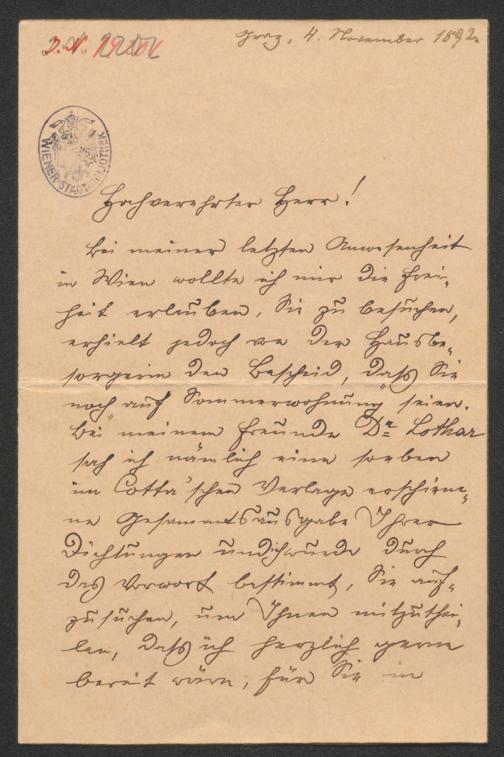 Graz, 4. November 1892.
J. N.
WIENER-STADTBIBLIOTHEK
Hochverehrter Herr!
Bei meiner letzten Anwesenheit
in Wien wollte ich mir die Frei-
heit erlauben, Sie zu besuchen,
erhielt jedoch von der Hausbe-
sorgerin den Bescheid, daß Sie
noch auf Sommerwohnung seien.
Bei meinem Freunde Dr. Lothar
sah ich nämlich eine soeben
im Cotta'schen Verlage erschiene-
ne Gesammtsausgabe Ihrer
Dichtungen und ich wurde durch
das Vorwort bestimmt, Sie auf-
zusuchen, um Ihnen mitzuthei-
len, daß ich herzlich gern
bereit wäre, für Sie in